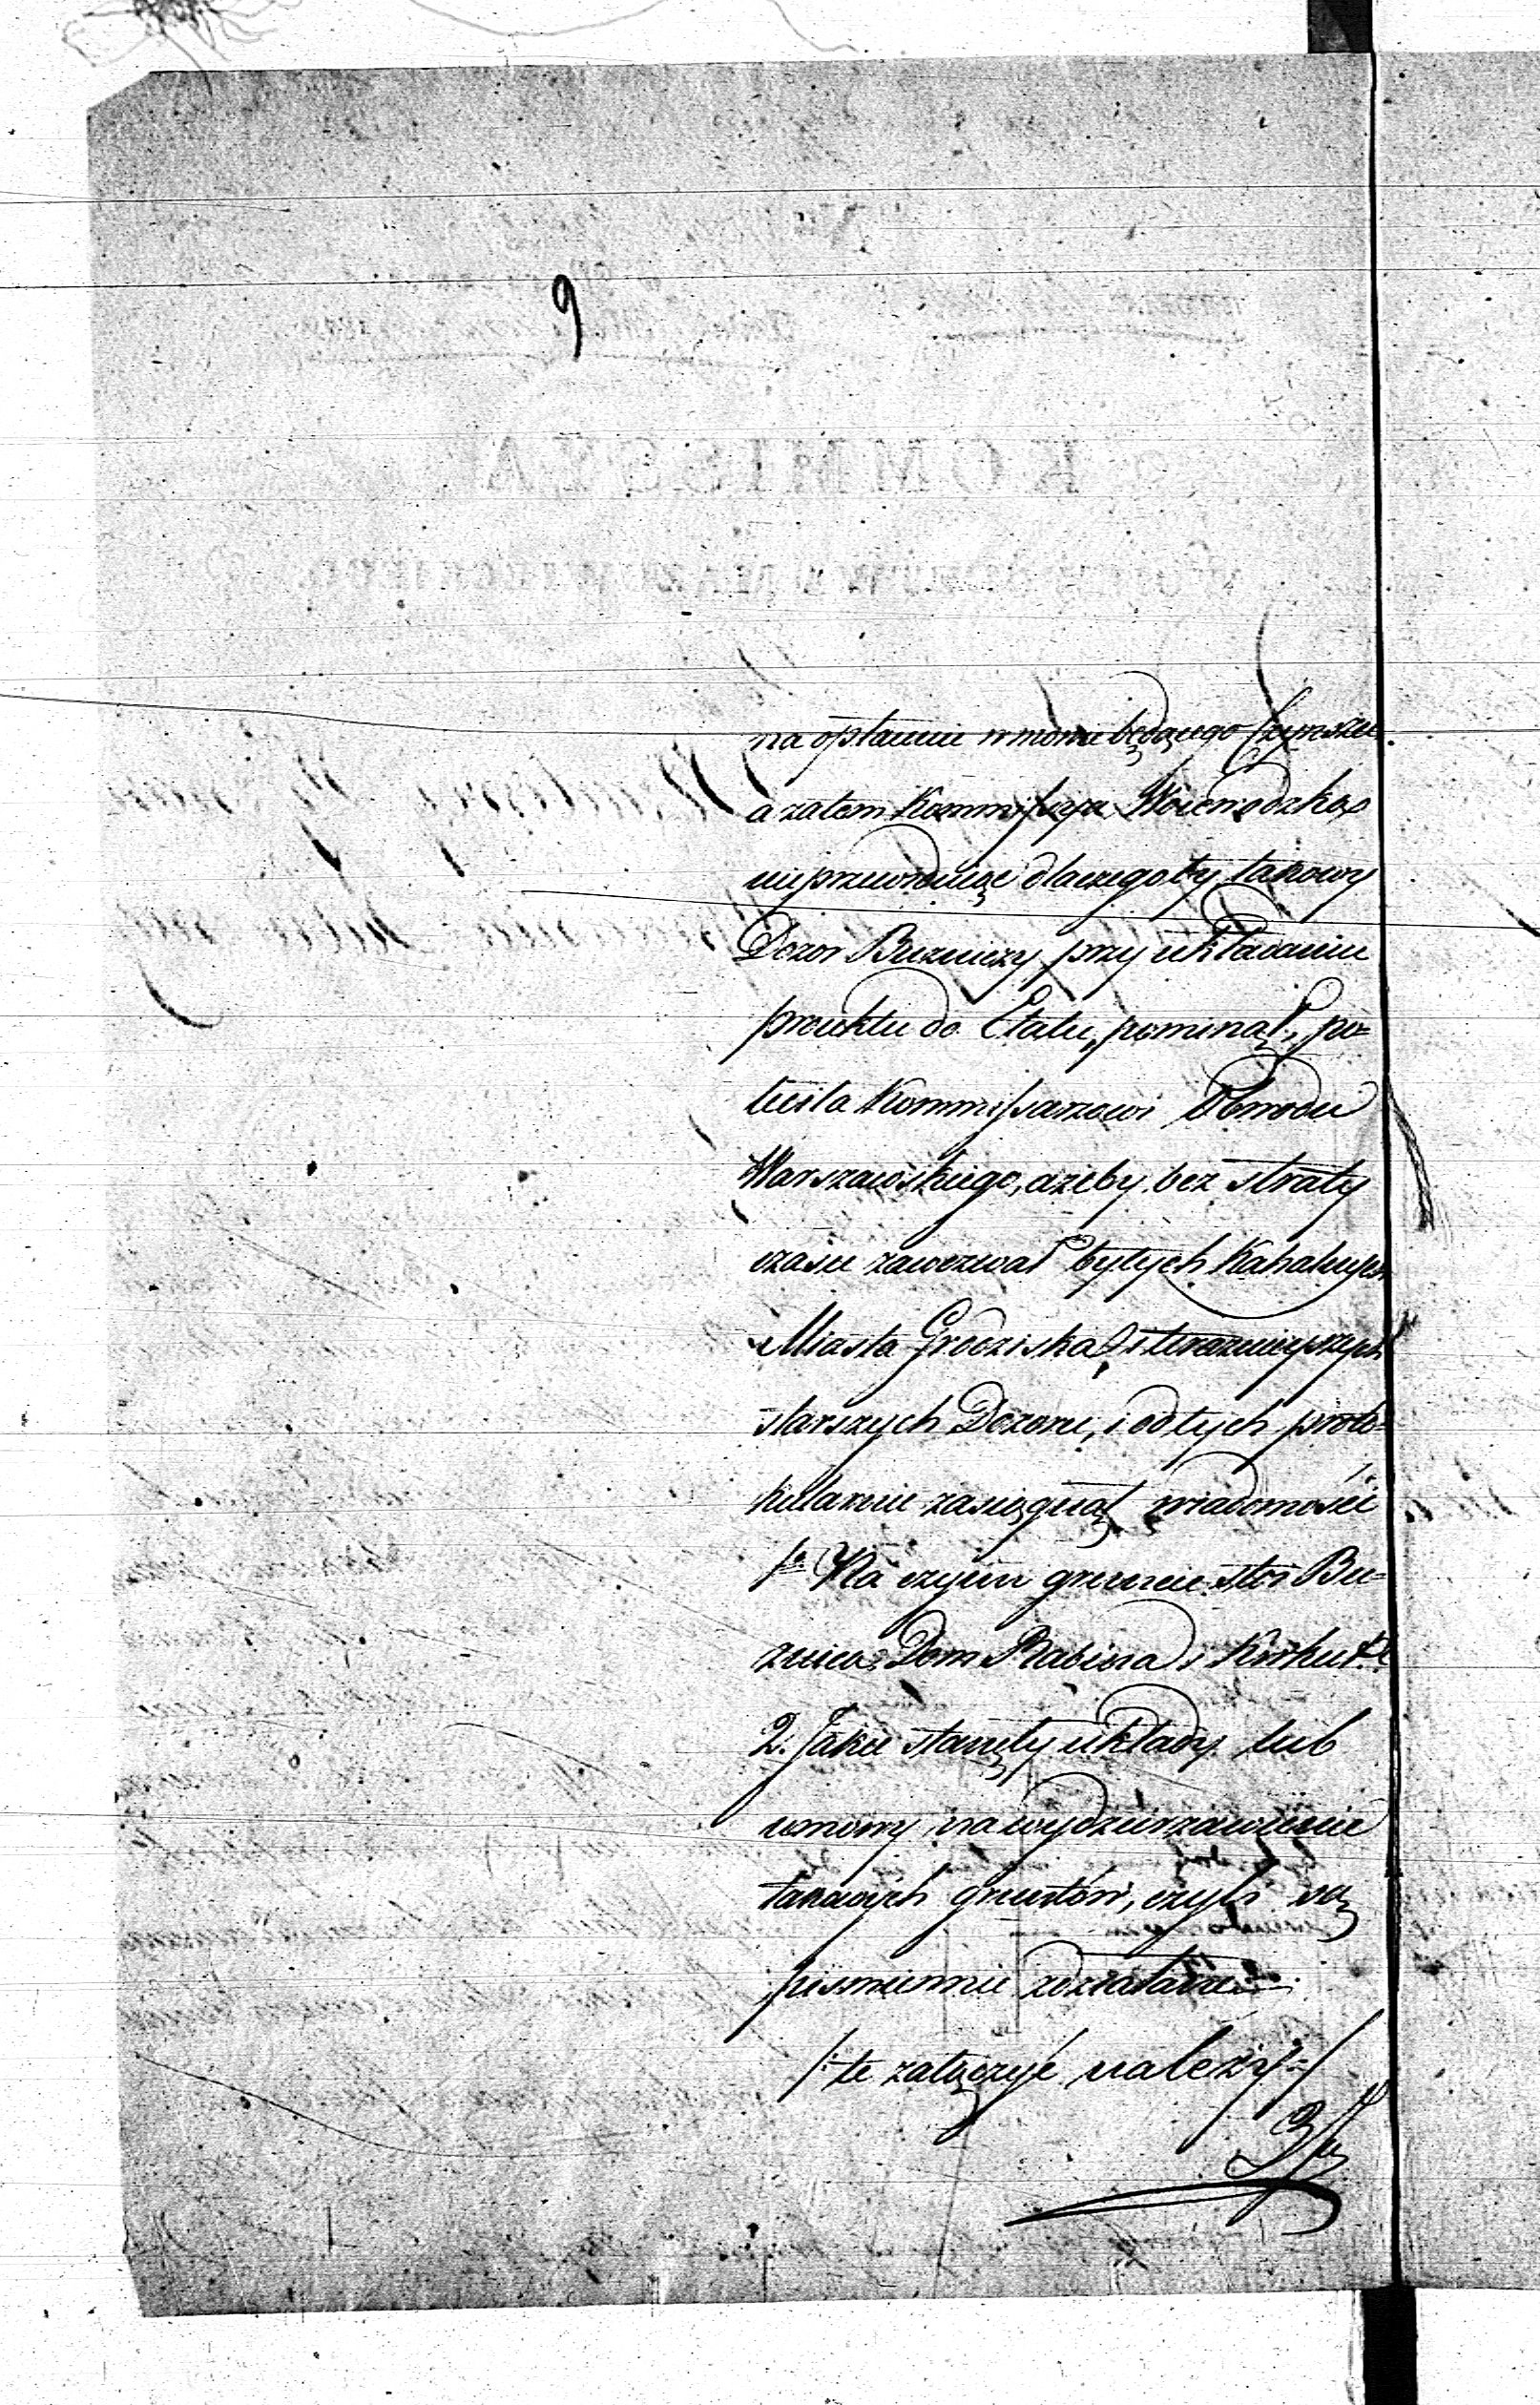 9
na opłaceniu w mowie będącego Czynszu
a zatem Kommissya Woiewodzka
nieprzewidując dlaczegoby takowy
Dozor Bużniczy przy układaniu
proiektu do Etatu, pominął, po=
leciła Kommissarzowi Obwodu
Warszawskiego, ażeby bez straty
czasu zawezwał byłych Kahalnych
Miasta Grodziska i teraznieyszych
starszych Dozoru, i od tych proto=
kularnie zasięgnął wiadomości
1o Na czyim gruncie stoi Bu=
żnica, Dom Rabina i Kirkut.
2. Jakie stanęły układy lub
umowy na wydzierzawienie
takowych gruntów, czyli są
pismiennie zdziałane
/: te załączyć należy :/